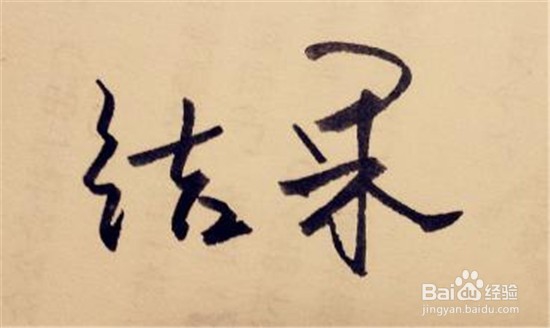 结果
Baidu经验
jingyan.baidu.com